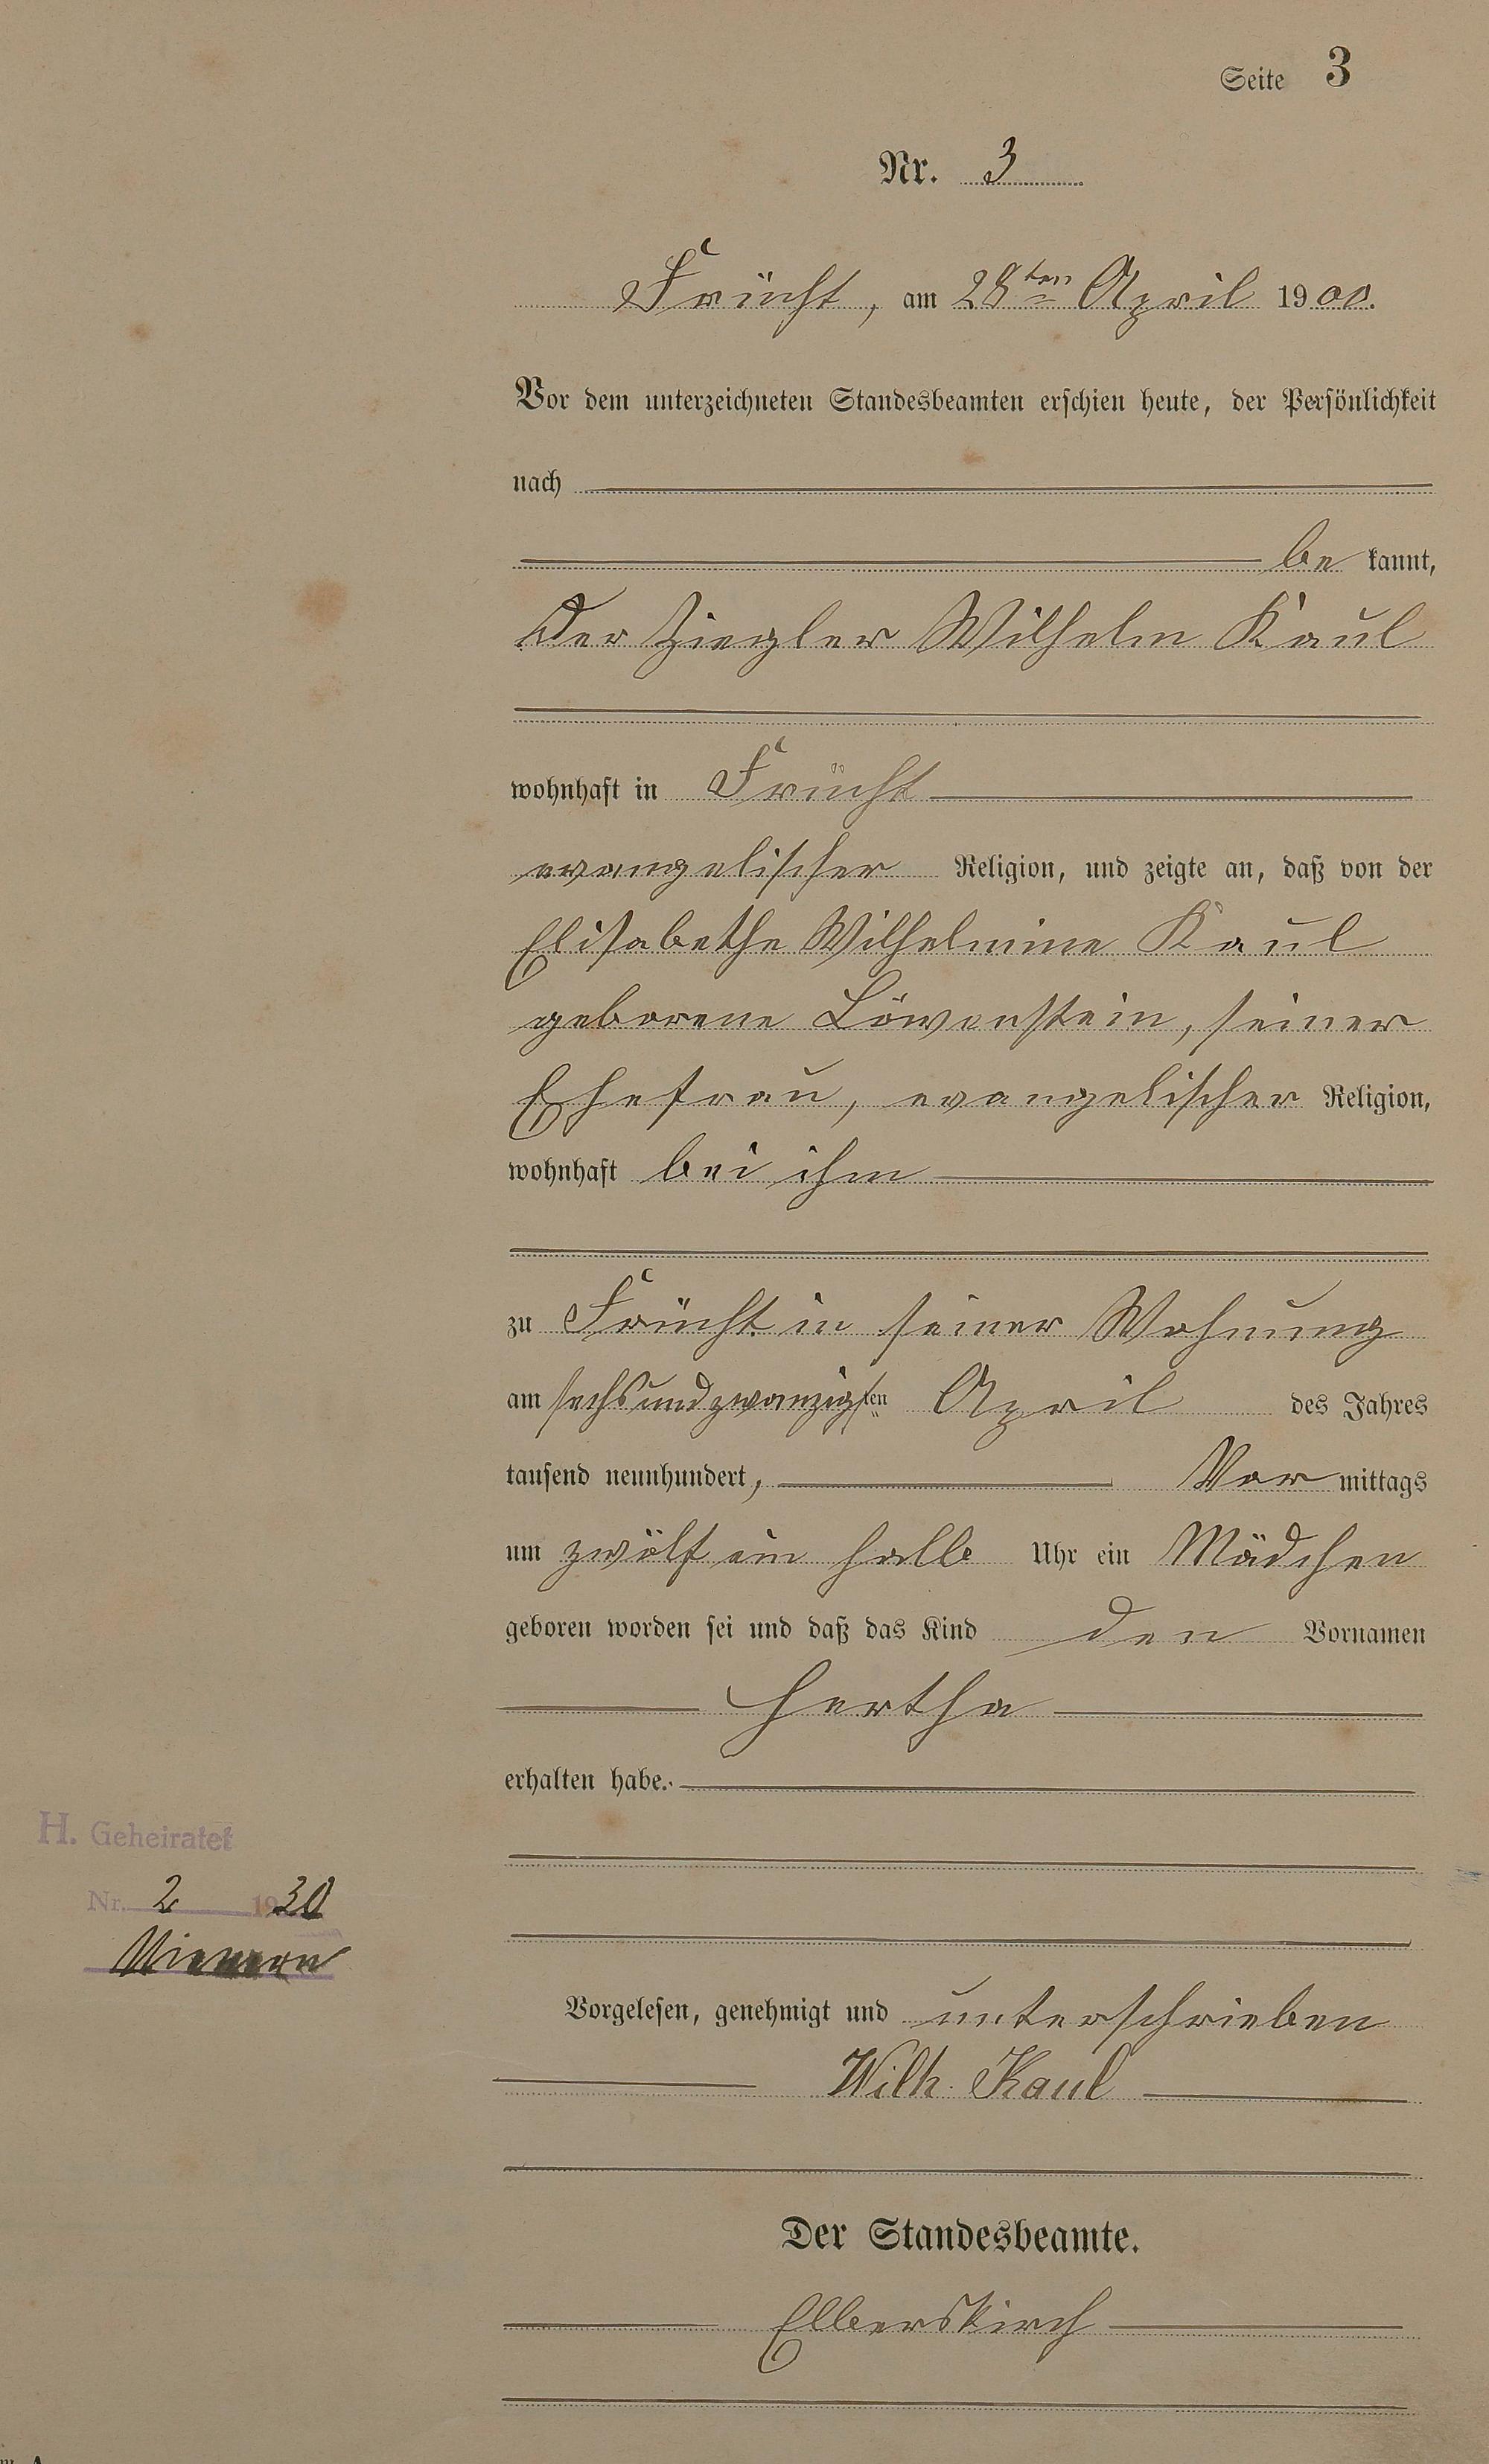 Seite 3
Nr. 3
Frücht, am 28ten April 1900.
Vor dem unterzeichneten Standesbeamten erschien heute, der Persönlichkeit
nach
be kannt,
der Ziegler Wilhelm Kaul
wohnhaft in Frücht
evangelischer Religion, und zeigte an, daß von der
Elisabethe Wilhelmine Kaul
geborene Löwenstein, seiner
Ehefrau, evangelischer Religion,
wohnhaft bei ihm
zu Frücht in seiner Wohnung
am sechsundzwanzigsten April des Jahres
tausend neunhundert, Vor mittags
um zwölf ein halb Uhr ein Mädchen
geboren worden sei und daß das Kind den Vornamen
Hertha
erhalten habe.
H. Geheiratet
Nr. 2 1930
Vorgelesen, genehmigt und unterschrieben
Wilh. Kaul
Der Standesbeamte.
Elberskirch